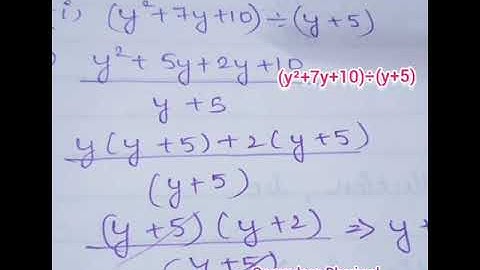 i) (y²+7y+10)÷(y+5)
y²+5y+2y+10
(y²+7y+10)÷(y+5)
y+5
y(y+5)+2(y+5)
(y+5)
(y+5)(y+2) ⇒ y
(y+5)